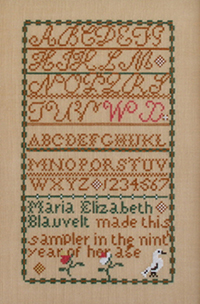 ABCDEFG
HIKLM
NOPQRS
TUV WB
ABCDEFGHIJKL
MNOPQRSTUV
WXYZ 1234567
Maria Elizabeth
Blauvelt made this
sampler in the nint
year of her age